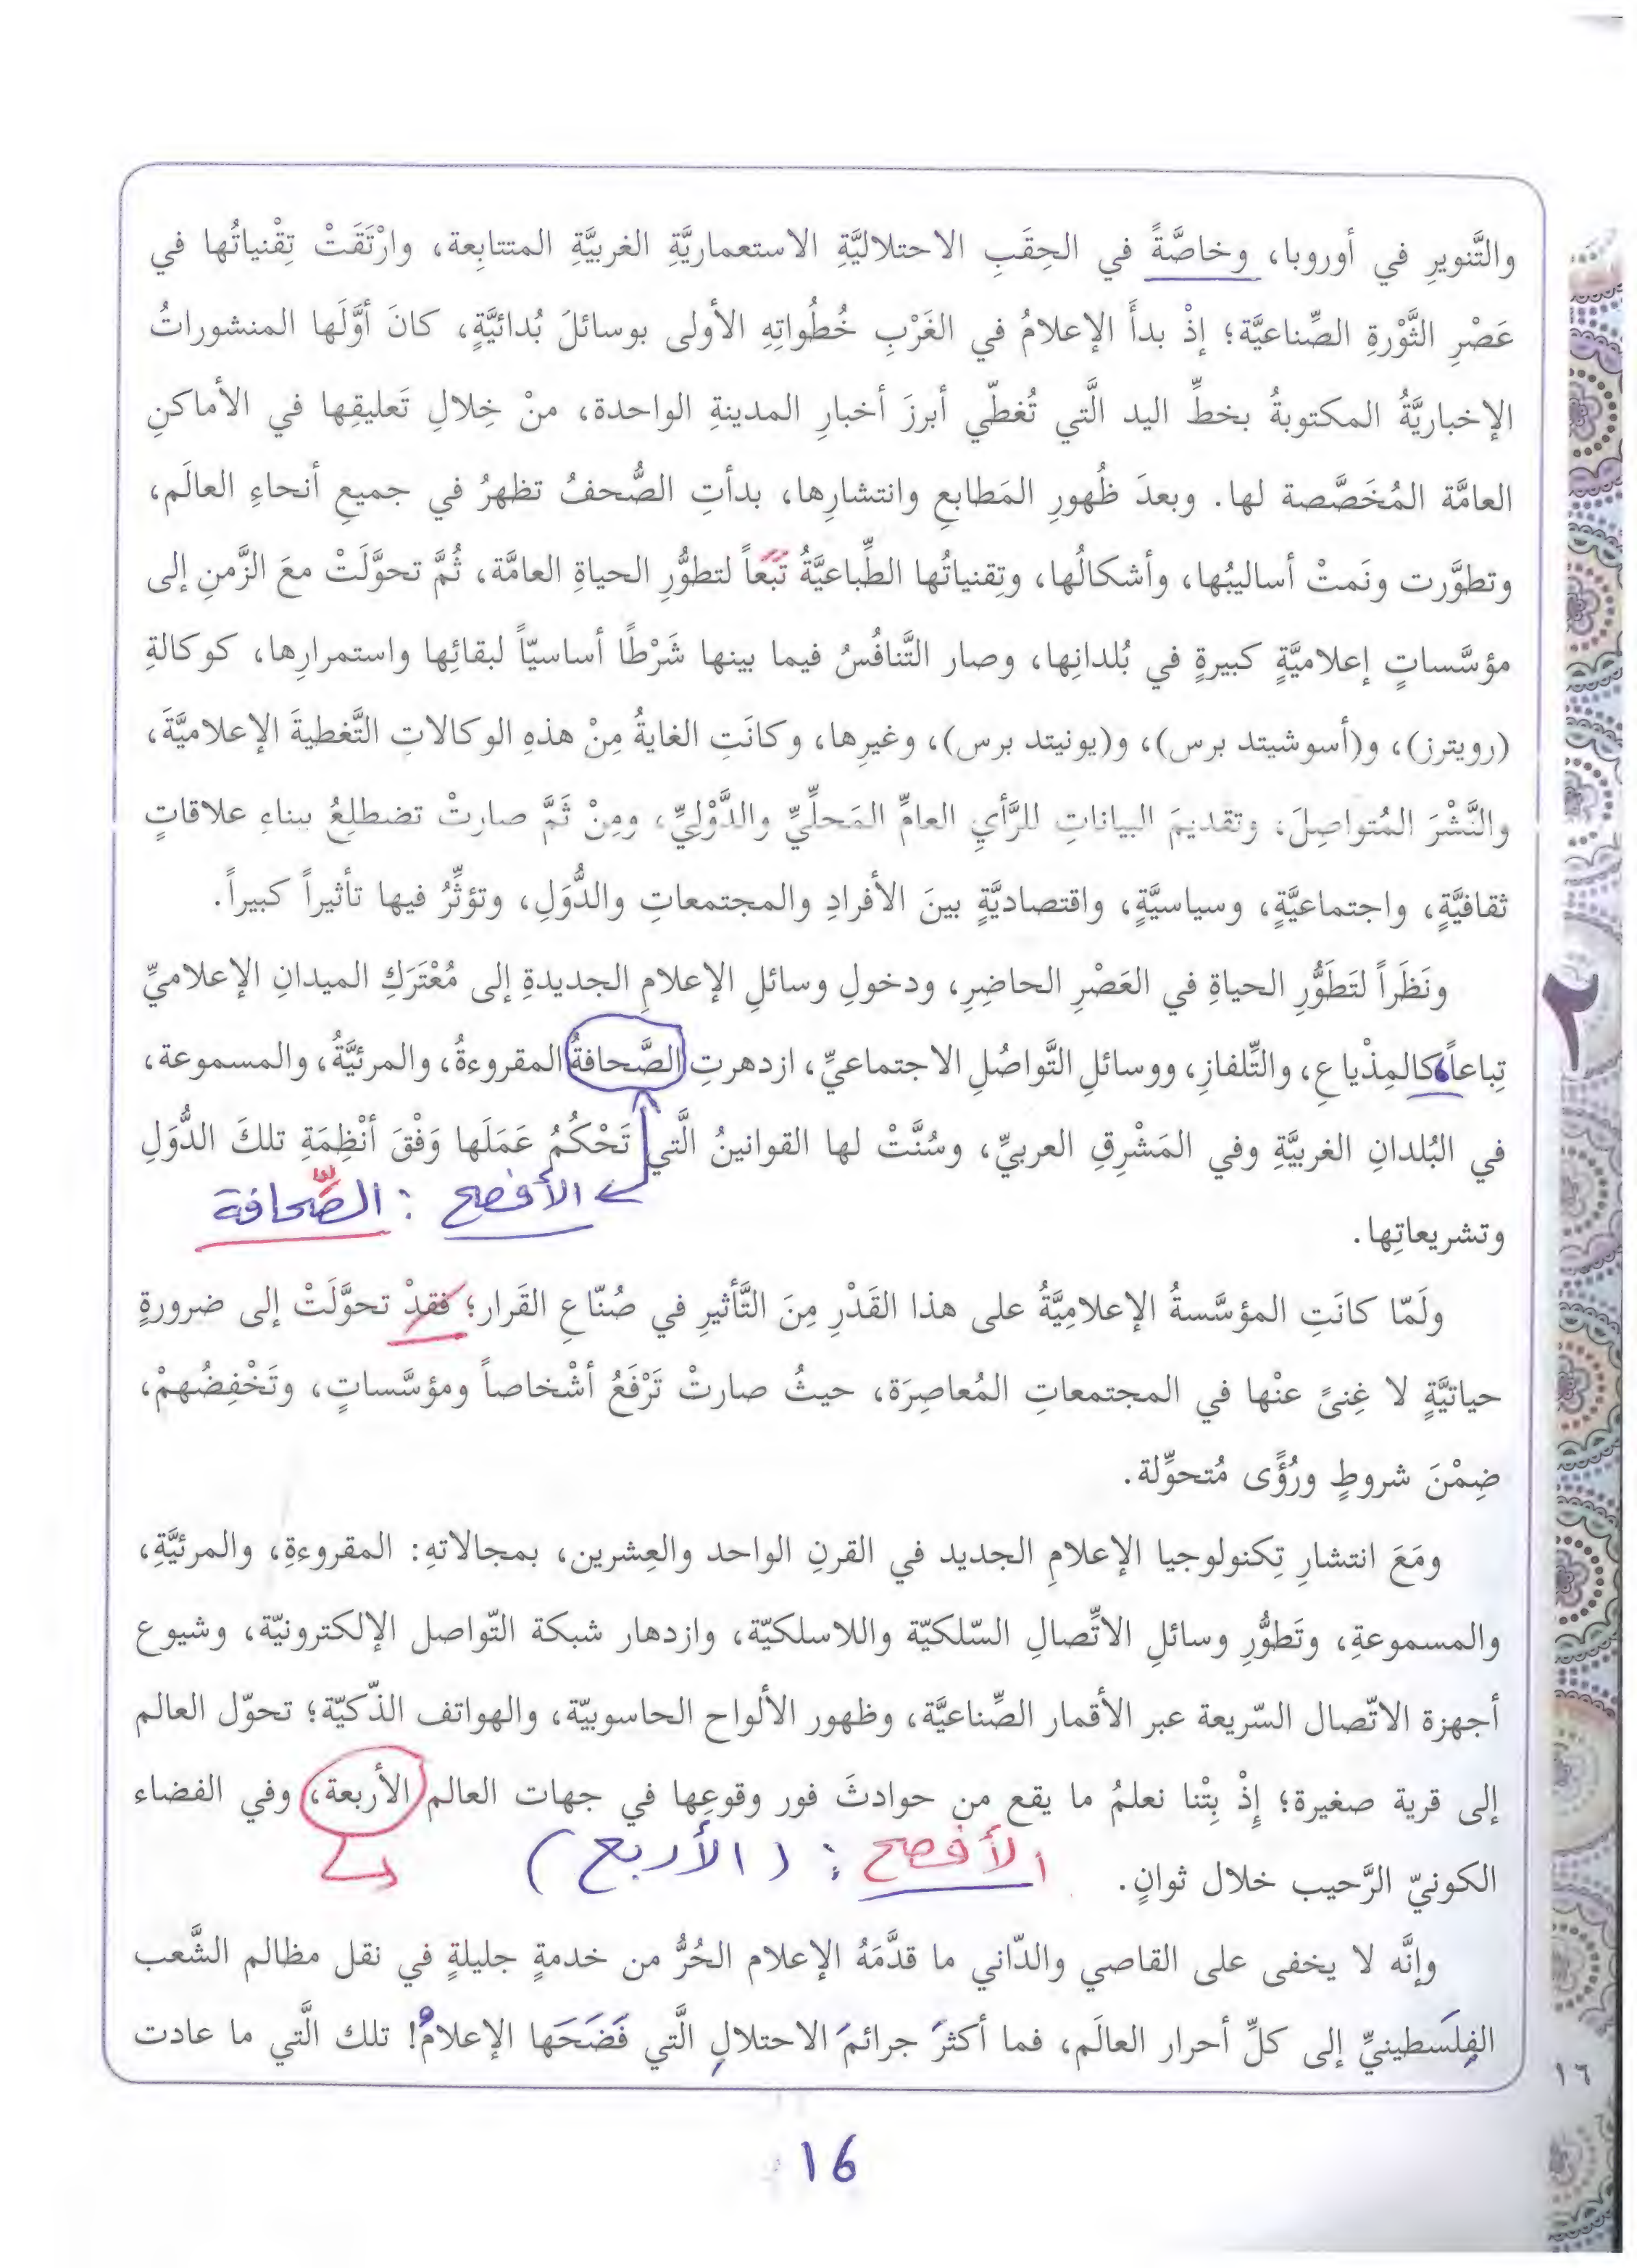 والتَّنويرِ في أوروبا، وخاصَّةً في الحِقَبِ الاحتلاليَّةِ الاستعماريَّةِ الغربيَّةِ المتتابِعة، وارْتَقَتْ تِقْنياتُها في
عَصْرِ الثَّوْرةِ الصِّناعيَّة؛ إذْ بدأَ الإعلامُ في الغَرْبِ خُطُواتِهِ الأولى بوسائلَ بُدائيَّةٍ، كانَ أوَّلَها المنشوراتُ
الإخباريَّةُ المكتوبةُ بخطِّ اليد الَّتي تُغطّي أبرزَ أخبارِ المدينةِ الواحدة، منْ خِلالِ تَعليقِها في الأماكنِ
العامَّة المُخَصَّصة لها. وبعدَ ظُهورِ المَطابعِ وانتشارِها، بدأتِ الصُّحفُ تظهرُ في جميعِ أنحاءِ العالَم،
وتطوَّرت ونَمتْ أساليبُها، وأشكالُها، وتِقنياتُها الطِّباعيَّةُ تَبَعاً لتطوُّرِ الحياةِ العامَّة، ثُمَّ تحوَّلَتْ معَ الزَّمنِ إلى
مؤسَّساتٍ إعلاميَّةٍ كبيرةٍ في بُلدانِها، وصار التَّنافُسُ فيما بينها شَرْطًا أساسيّاً لبقائِها واستمرارِها، كوكالةِ
(رويترز)، و(أسوشيتد برس)، و(يونيتد برس)، وغيرِها، وكانَتِ الغايةُ مِنْ هذهِ الوكالاتِ التَّغطيةَ الإعلاميَّةَ،
والنَّشْرَ المُتواصِلَ، وتقديمَ البياناتِ للرَّأيِ العامِّ المَحلِّيِّ والدَّوْليِّ، ومِنْ ثَمَّ صارتْ تضطلِعُ ببناءِ علاقاتٍ
ثقافيَّةٍ، واجتماعيَّةٍ، وسياسيَّةٍ، واقتصاديَّةٍ بينَ الأفرادِ والمجتمعاتِ والدُّوَلِ، وتؤثِّرُ فيها تأثيراً كبيراً.
ونَظَراً لتَطَوُّرِ الحياةِ في العَصْرِ الحاضِرِ، ودخولِ وسائلِ الإعلامِ الجديدةِ إلى مُعْتَرَكِ الميدانِ الإعلاميِّ
٢
تِباعاً، كالمِذْياعِ، والتِّلفازِ، ووسائلِ التَّواصُلِ الاجتماعيِّ، ازدهرتِ الصَّحافةُ المقروءةُ، والمرئيَّةُ، والمسموعة،
في البُلدانِ الغربيَّةِ وفي المَشْرِقِ العربيِّ، وسُنَّتْ لها القوانينُ الَّتي تَحْكُمُ عَمَلَها وَفْقَ أنْظِمَةِ تلكَ الدُّوَلِ
الأفصح : الصِّحافة
وتشريعاتِها.
ولَمّا كانَتِ المؤسَّسةُ الإعلامِيَّةُ على هذا القَدْرِ مِنَ التَّأثيرِ في صُنّاعِ القَرار؛ فقدْ تحوَّلَتْ إلى ضرورةٍ
حياتيَّةٍ لا غِنىً عنْها في المجتمعاتِ المُعاصِرَة، حيثُ صارتْ تَرْفَعُ أشْخاصاً ومؤسَّساتٍ، وتَخْفِضُهمْ،
ضِمْنَ شروطٍ ورُؤًى مُتحوِّلة.
ومَعَ انتشارِ تِكنولوجيا الإعلامِ الجديد في القرنِ الواحد والعِشرين، بمجالاتهِ: المقروءةِ، والمرئيَّةِ،
والمسموعةِ، وتَطوُّرِ وسائلِ الاتِّصالِ السّلكيّة واللاسلكيّة، وازدهار شبكة التّواصل الإلكترونيّة، وشيوع
أجهزة الاتّصال السّريعة عبر الأقمار الصِّناعيَّة، وظهور الألواح الحاسوبيّة، والهواتف الذّكيّة؛ تحوّل العالم
إلى قرية صغيرة؛ إِذْ بِتْنا نعلمُ ما يقع من حوادثَ فور وقوعِها في جهات العالم الأربعة، وفي الفضاء
الأفصح : (الأربع)
الكونيّ الرَّحيب خلال ثوانٍ.
وإنَّه لا يخفى على القاصي والدّاني ما قدَّمَهُ الإعلام الحُرُّ من خدمةٍ جليلةٍ في نقل مظالم الشَّعب
الفِلَسطينيِّ إلى كلِّ أحرار العالَم، فما أكثرَ جرائمَ الاحتلالِ الَّتي فَضَحَها الإعلامُ! تلك الَّتي ما عادت
١٦
16